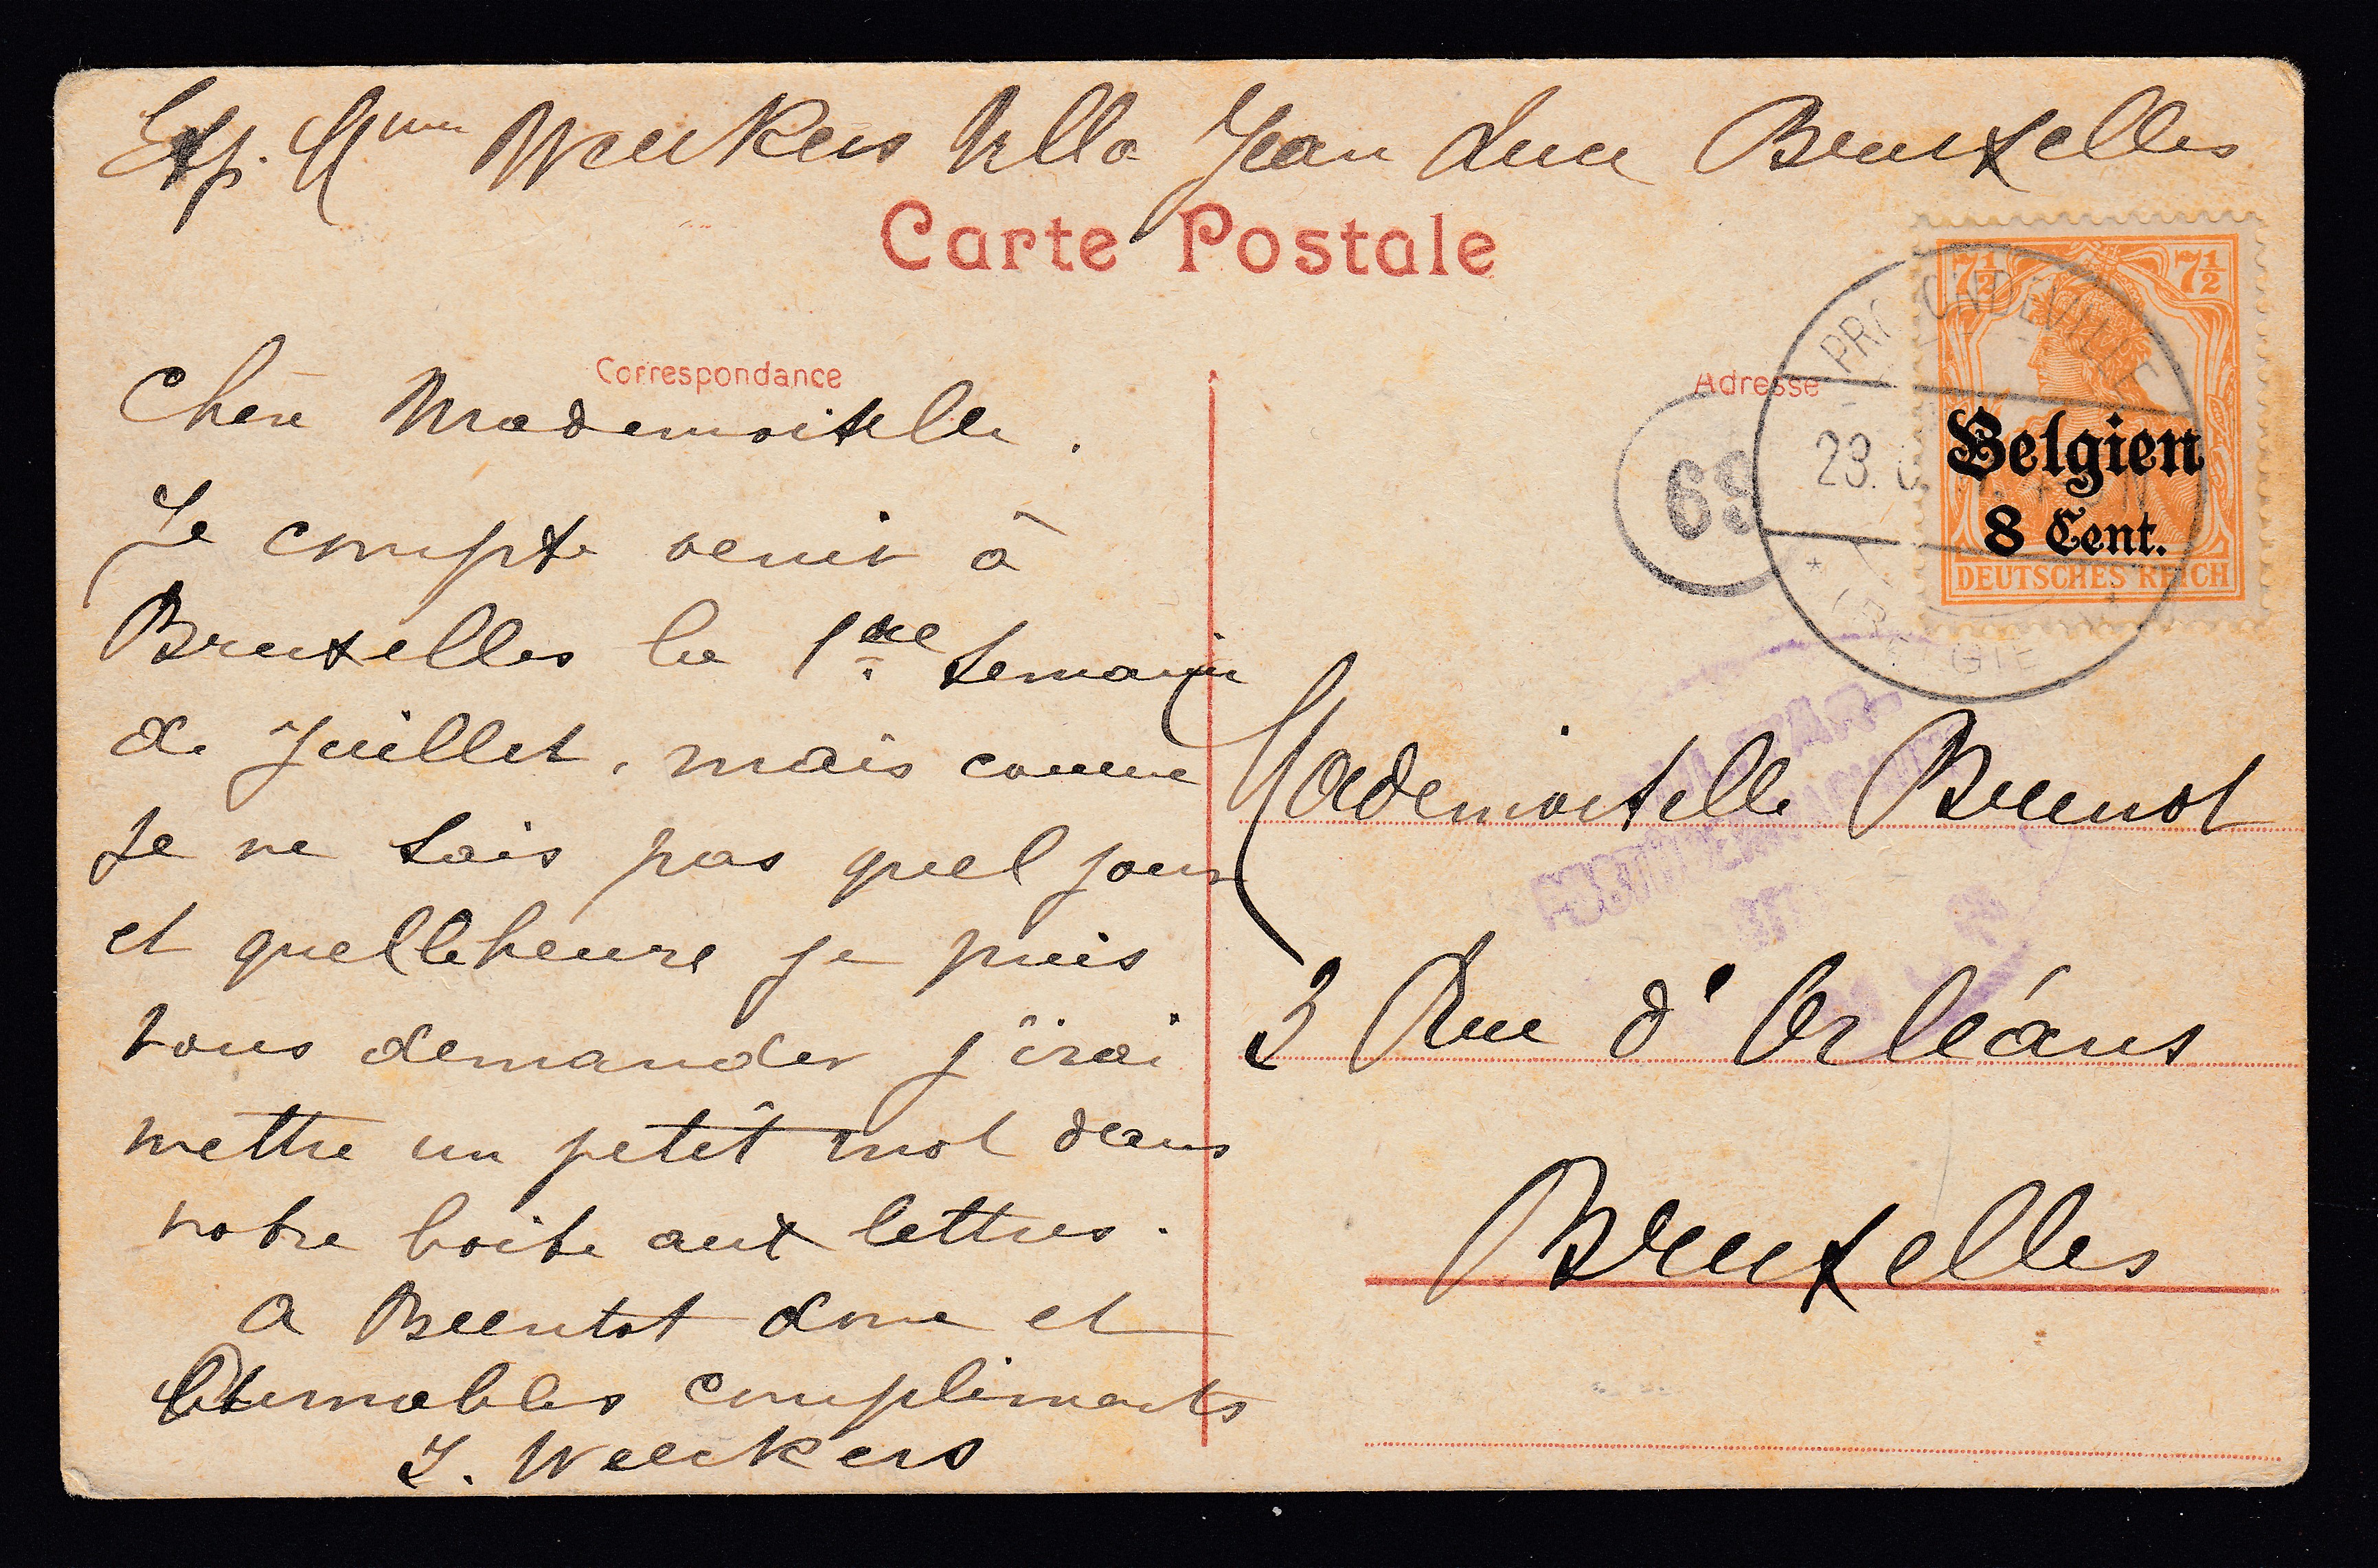 Exp. Mme Weckers Villa Jean Luce Bruxelles
Carte Postale
Correspondance
Chère Mademoiselle.
Je compte venir à
Bruxelles la 1ère semaine
de Juillet, mais comme
je ne sais pas quel jour
et quelle heure je puis
vous demander j'irai
mettre un petit mot dans
notre boite aux lettres.
A Bientot donc et
aimables compliments
J. Weeckers
Adresse
7½ 7½
Belgien
8 Cent.
DEUTSCHES REICH
PROFONDEVILLE
69
Mademoiselle Brunot
3 Rue d'Orléans
Bruxelles